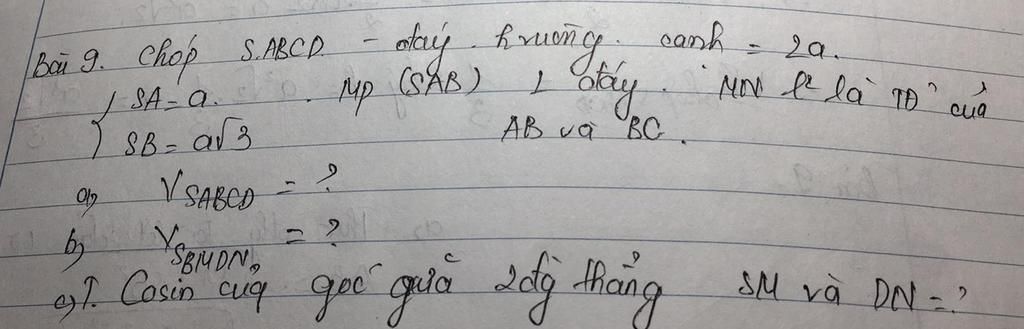 Bài 9. Chóp S.ABCD - đáy hvuông. cạnh = 2a.
{ SA = a. . Mp (SAB) ⊥ đáy. MN lần lượt là TĐ của
SB = a√3 AB và BC.
a, V_SABCD = ?
b, V_SBMDN = ?
c, T. Cosin của góc giữa 2 đg thẳng SM và DN = ?